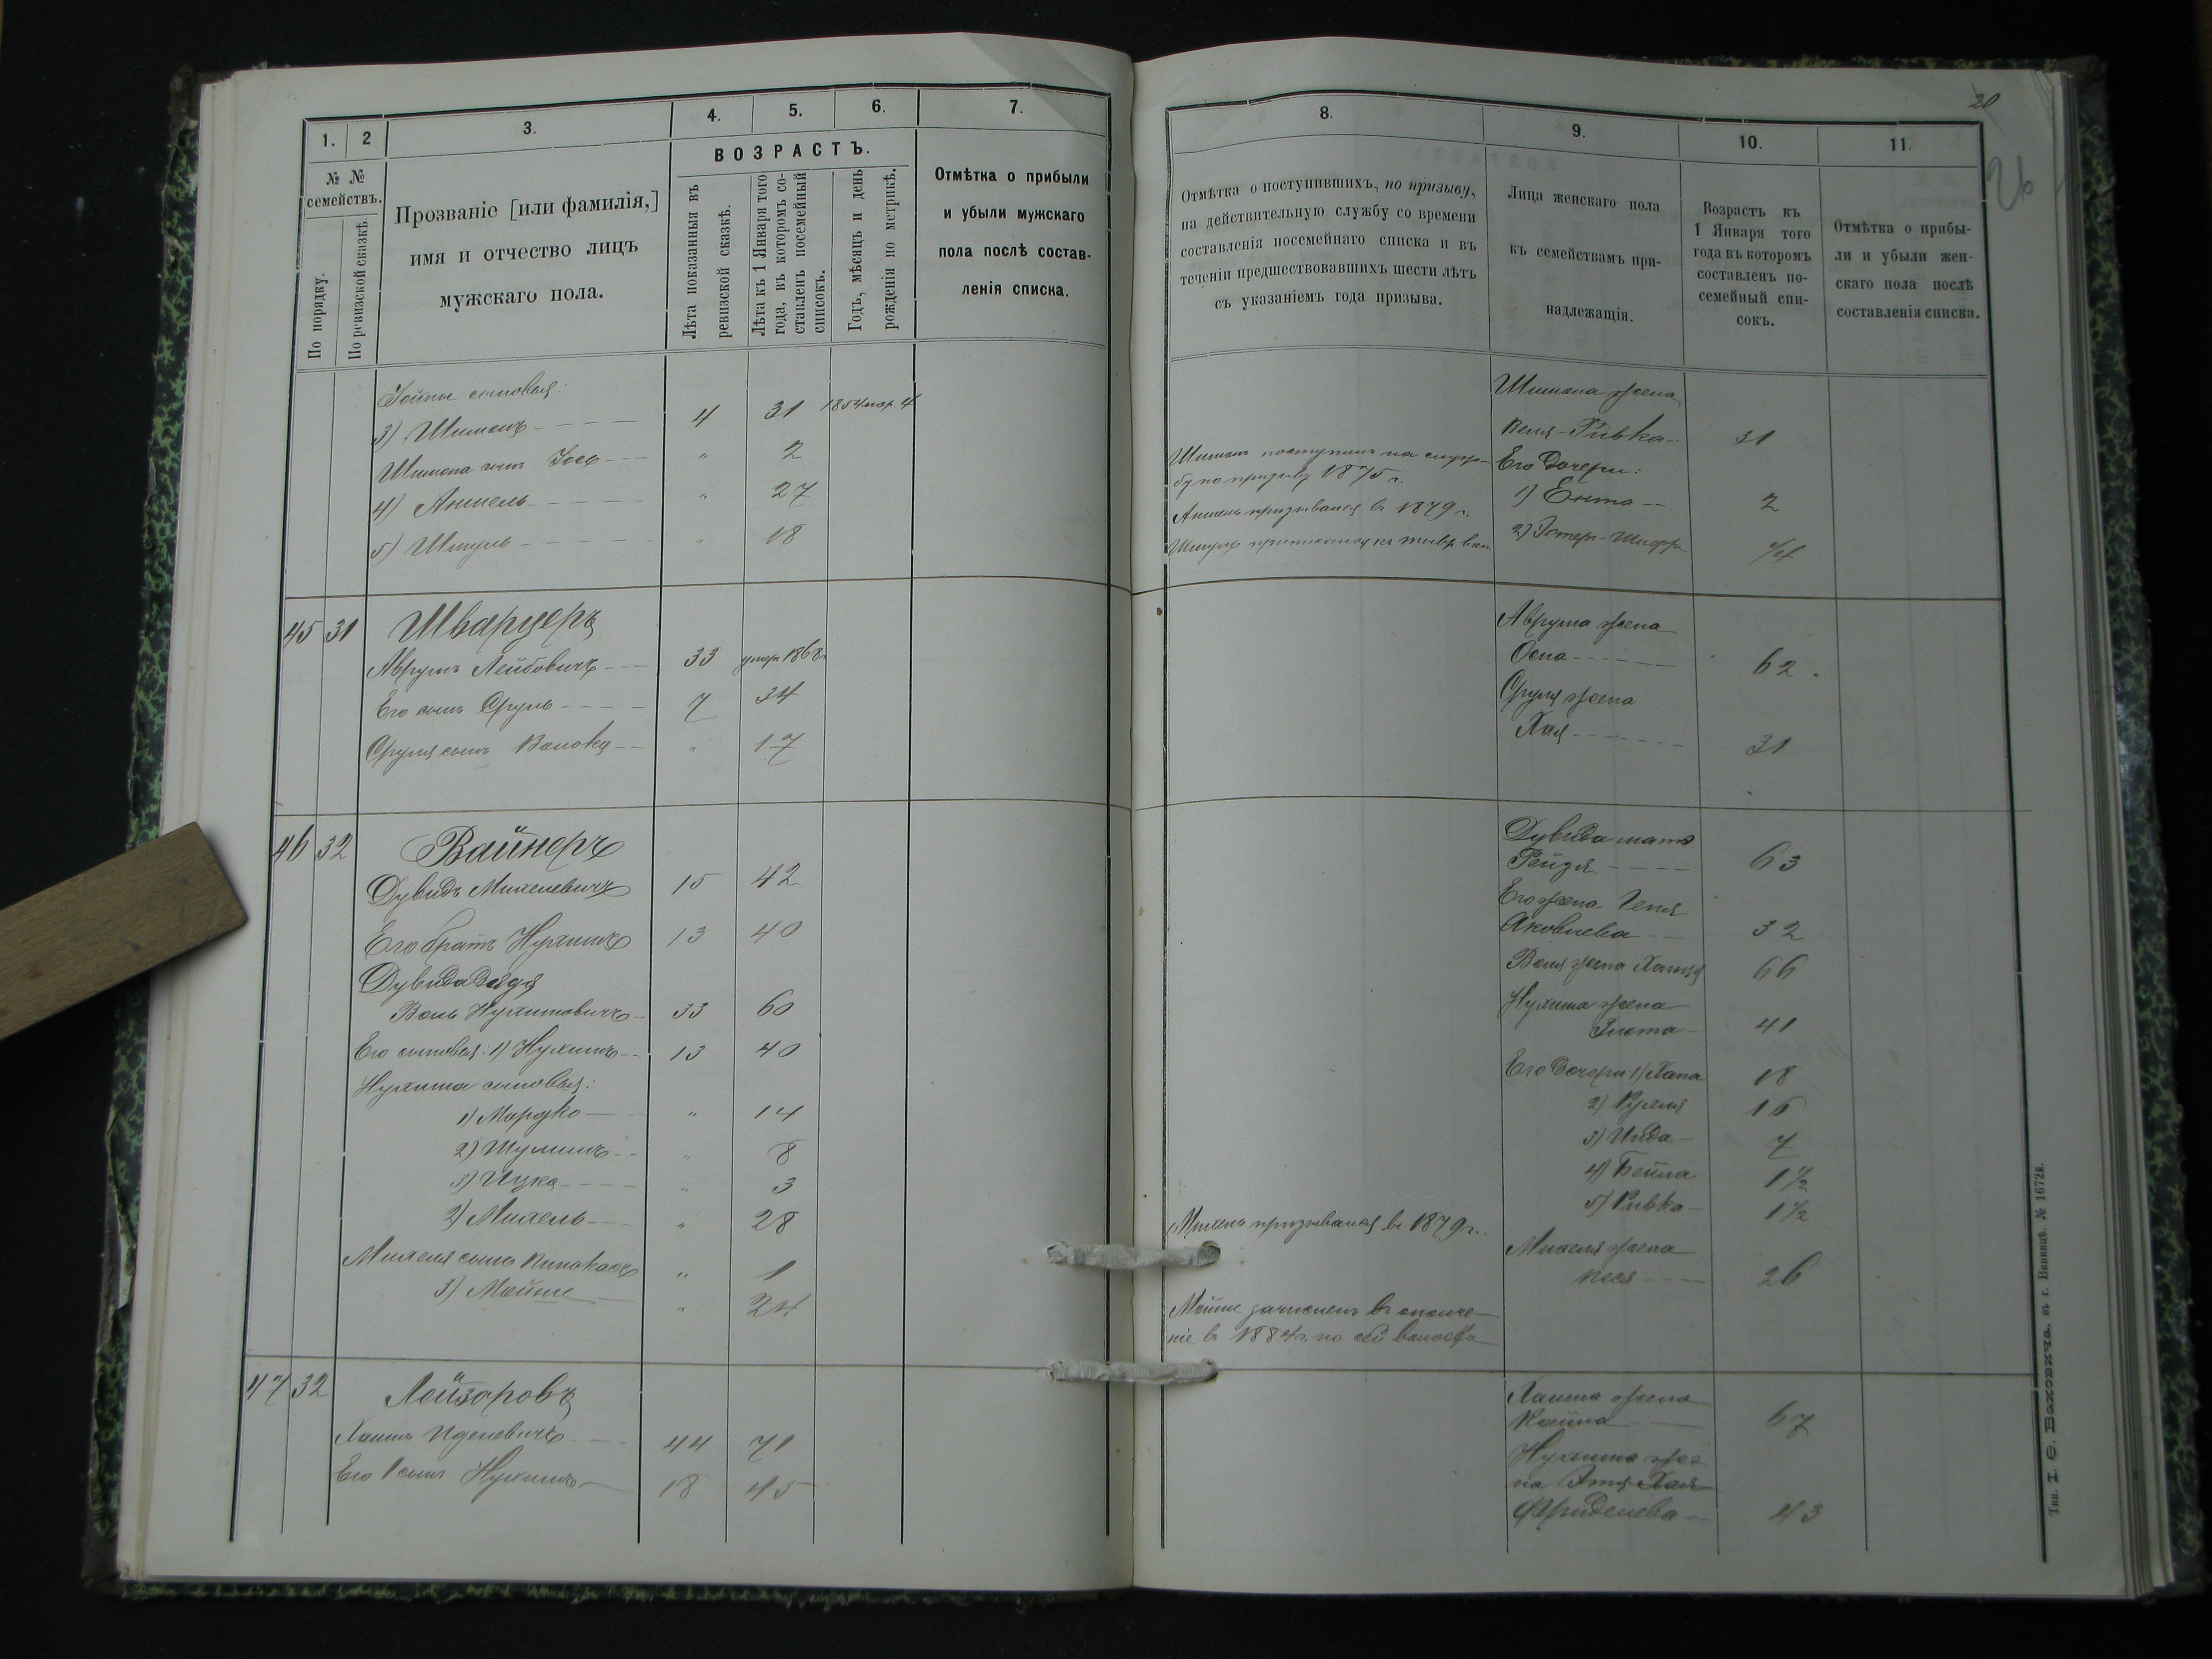 1. 2 3. 4. 5. 6. 7.
№ №
семействъ.
По порядку.
По ревизской сказкѣ.
Прозваніе [или фамилія,]
имя и отчество лицъ
мужскаго пола.
ВОЗРАСТЪ.
Лѣта показанныя въ
ревизской сказкѣ.
Лѣта къ 1 Января того
года, въ которомъ со-
ставленъ посемейный
списокъ.
Годъ, мѣсяцъ и день
рожденія по метрикѣ.
Отмѣтка о прибыли
и убыли мужскаго
пола послѣ состав-
ленія списка.
сыновья:
3) Шимонъ - - - - 4 31 1854 мар. 4
Шимона сынъ Іось - - - " 2
4) Аншель - - - - " 27
5) Шмуль - - - - " 18
45 31 Шварцеръ
Аврумъ Лейбовичъ - - - 33 умеръ 1868 г.
Его сынъ Сруль - - - - 7 34
Сруля сынъ - - " 17
46 32 Вайнеръ
Дувидъ Михелевичъ 15 42
Его братъ Нухимъ 13 40
Дувида дядя
Волъ Нухимовичъ - - 33 60
Его сыновья: 1) Нухимъ - - 13 40
Нухима сыновья:
1) Мордко - " 14
2) Шулимъ - - " 8
3) Ицко - - - - " 3
2) Михель - - - " 28
Михеля сынъ " 1
3) Мойше - " 24
47 32 Лойзоровъ
Хаимъ - - - 44 71
Его 1 сынъ Нухимъ - 18 45
20
26
8. 9. 10. 11.
Отмѣтка о поступившихъ, по призыву,
на дѣйствительную службу со времени
составленія посемейнаго списка и въ
теченіи предшествовавшихъ шести лѣтъ
съ указаніемъ года призыва.
Лица женскаго пола
къ семействамъ при-
надлежащія.
Возрастъ къ
1 Января того
года въ которомъ
составленъ по-
семейный спи-
сокъ.
Отмѣтка о прибы-
ли и убыли жен-
скаго пола послѣ
составленія списка.
Шимона жена
Ривка - - 31
Шимонъ поступилъ на служ-
бу по призыву 1875 г.
Его дочери:
1) Ента - - 2
Аншель призывался въ 1879 г.
2) Эстеръ-
Шмуль приписался къ
Аврума жена
- - - - 62
Сруля жена
Хая - - - - 31
Дувида мать
Рейзя - - - - 63
Его жена
Яковлева - - 32
Воля жена 66
Нухима жена
Злота - 41
Его дочери 1) Хана 18
2) Рухля 16
3) - 7
4) Бейла 1½
5) Ривка - 1½
Михель призывался въ 1879 г.
Михеля жена
Песя - - - 26
Мойше зачисленъ въ ополче-
ніе въ 1884 г. по
Хаима жена
- - 67
Нухима же-
на Хая
Фриделева - 43
Тип. І. Ѳ. Баховича, въ г. Винницѣ. № 1672в.